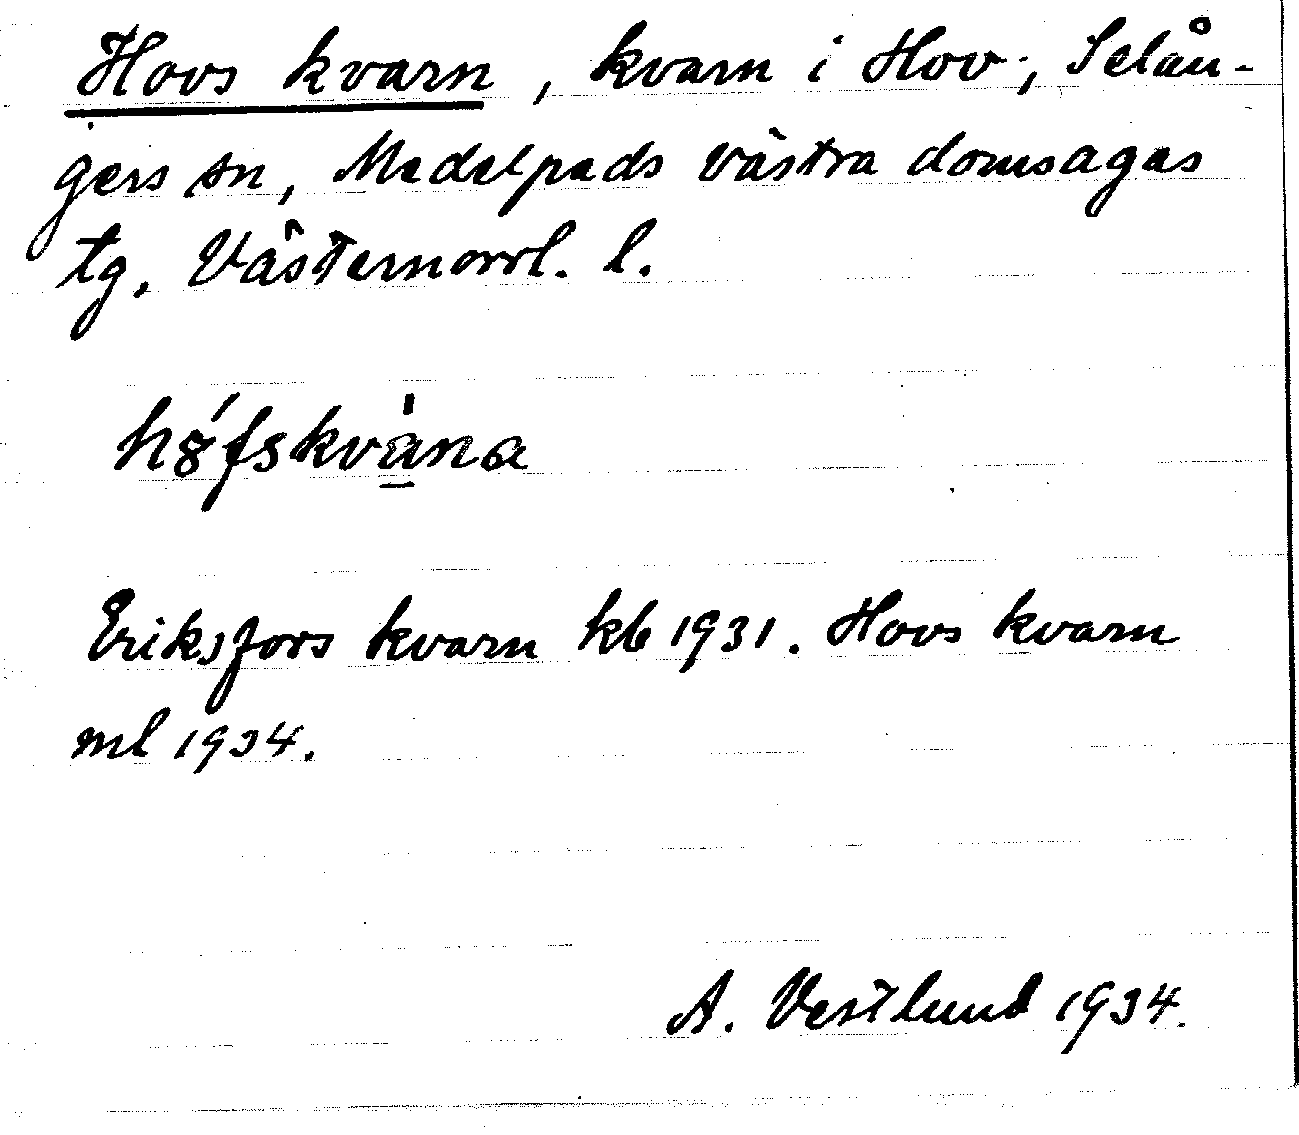 Hovs kvarn, kvarn i Hov, Selån-
gers sn, Medelpads västra domsagas
tg. Västernorrl. l.
hófskvàna
Eriksfors kvarn kb 1931. Hovs kvarn
ml 1934.
A. Vestlund 1934.